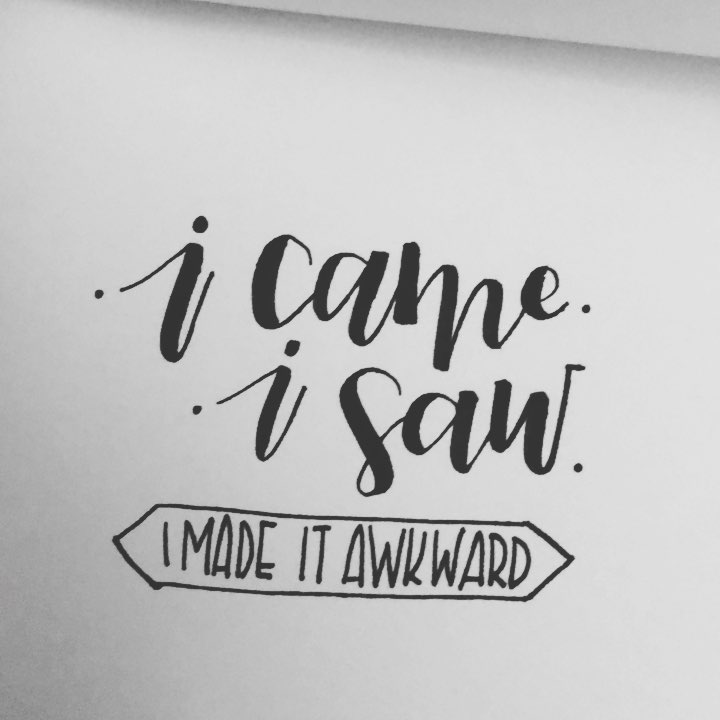 · i came ·
· i saw.
I MADE IT AWKWARD